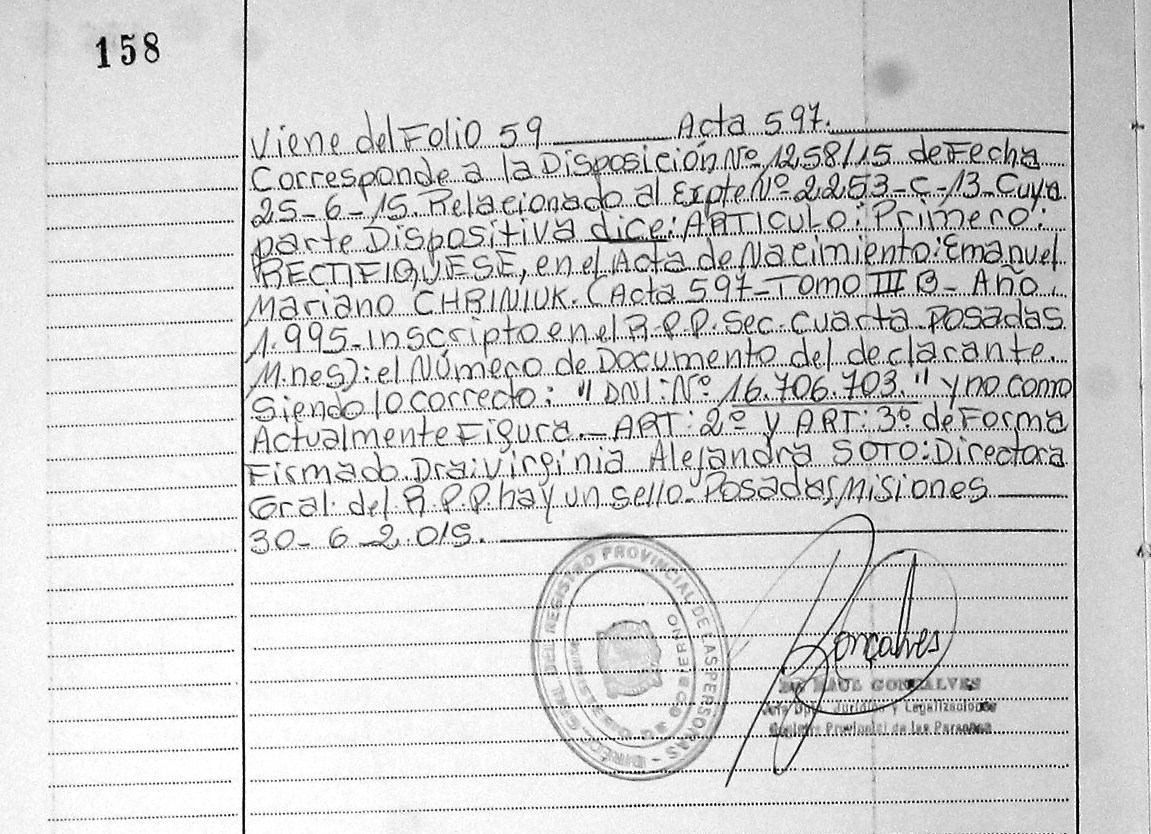 158
Viene del Folio 59 Acta 597.
Corresponde a la Disposición Nº 1258/15 de Fecha
25-6-15. Relacionado al Expte Nº 2253-C-13-Cuya
parte Dispositiva dice: ARTICULO: Primero:
RECTIFIQUESE, en el Acta de Nacimiento: Emanuel
Mariano CHRINIUK. (Acta 597-Tomo III B- Año
1.995-inscripto en el R.P.P. Sec. Cuarta Posadas
M.nes): el Número de Documento del declarante.
Siendo lo correcto: "DNI: Nº 16.706.703." y no como
Actualmente Figura.- ART: 2º y ART: 3º de Forma
Firmado. Dra: Virginia Alejandra SOTO: Directora
Gral. del R.P.P. hay un sello- Posadas, Misiones
30-6-2.015.
DIREC. GRAL. DEL REGISTRO PROVINCIAL DE LAS PERSONAS
MINISTERIO DE GOBIERNO
Gonçalves
RAUL GONZALVES
Jefe Dpto. Jurídico y Legalizaciones
Registro Provincial de las Personas